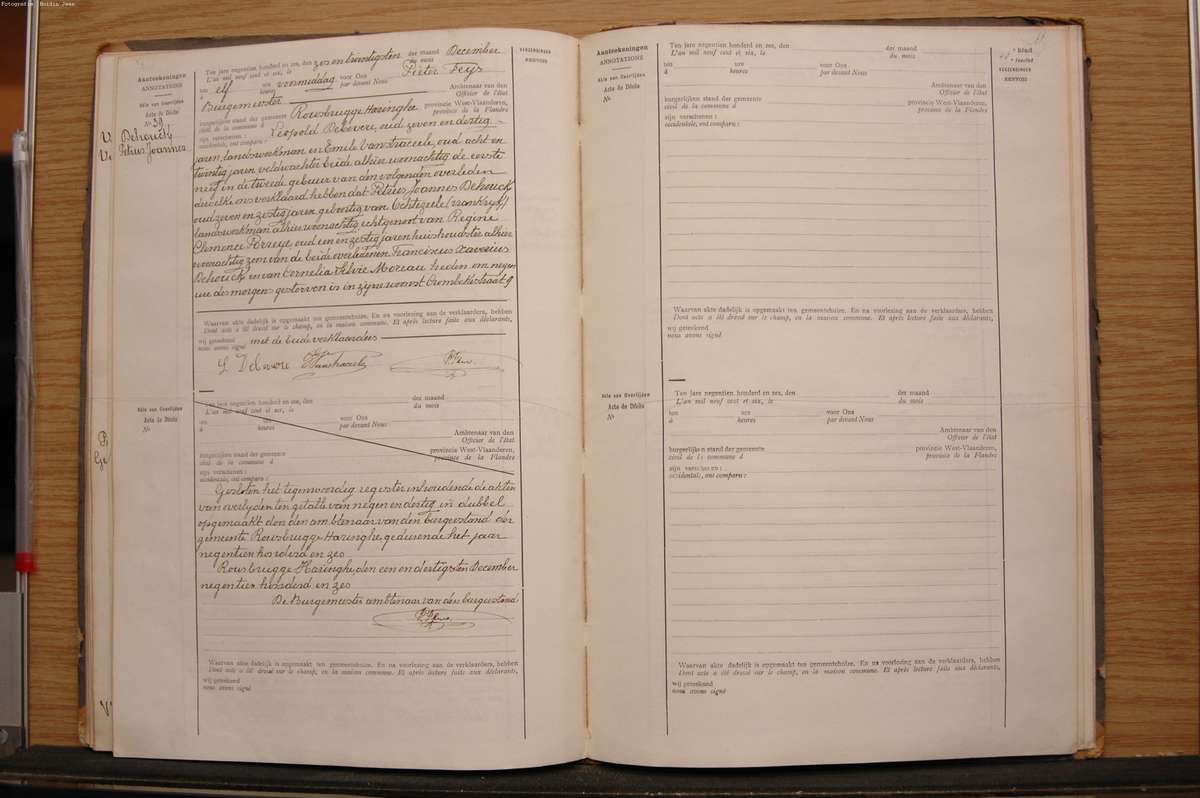 Fotografie: Boidin Jean
Aanteekeningen
ANNOTATIONS
Akte van Overlijden
Acte de Décès
Nº 39
Dehouck
Petrus Joannes
Ten jare negentien honderd en zes, den zes en twintigsten der maand December
L'an mil neuf cent et six, le du mois
ten elf ure voormiddag voor Ons Pieter Feys
à heures par devant Nous
Burgemeester Ambtenaar van den
Officier de l'état
burgerlijken stand der gemeente Rousbrugge Haringhe provincie West-Vlaanderen,
civil de la commune d province de la Flandre
zijn verschenen : Leopold Debevere, oud zeven en dertig
occidentale, ont comparu :
jaren, landswerkman en Emile Vanstraceele, oud acht en
twintig jaren veldwachter beide alhier woonachtig de eerste
neef en de tweede gebuur van den volgenden overleden
dewelke ons verklaard hebben dat Petrus Joannes Dehouck
oud zeven en zestig jaren geboortig van Ochtezeele (vrankryk)
landswerkman alhier woonachtig echtgenoot van Regine
Clemence Porreye, oud een en zestig jaren huishoudster alhier
woonachtig zoon van de beide overledenen Franciscus Xaverius
Dehouck en van Cornelia Silvie Moreau heden om negen
ure des morgens gestorven is in zijne woonst Crombekestraat 9
Waarvan akte dadelijk is opgemaakt ten gemeentehuize. En na voorlezing aan de verklaarders, hebben
Dont acte a été dressé sur le champ, en la maison commune. Et après lecture faite aux déclarants,
wij geteekend met de beide verklaarders
nous avons signé
VERZENDINGEN
RENVOIS
Akte van Overlijden
Acte de Décès
Nº
Ten jare negentien honderd en zes, den der maand
L'an mil neuf cent et six, le du mois
ten ure voor Ons
à heures par devant Nous
Ambtenaar van den
Officier de l'état
burgerlijken stand der gemeente provincie West-Vlaanderen,
civil de la commune d province de la Flandre
zijn verschenen :
occidentale, ont comparu :
Gesloten het tegenwoordig register inhoudende de akten
van overlyden ten getalle van negen en dertig in dubbel
opgemaakt door den ambtenaar van den burgerstand der
gemeente Rousbrugge Haringhe gedurende het jaar
negentien honderd en zes
Rousbrugge Haringhe, den een en dertigsten December
negentien honderd en zes
De Burgemeester ambtenaar van den burgerstand
Waarvan akte dadelijk is opgemaakt ten gemeentehuize. En na voorlezing aan de verklaarders, hebben
Dont acte a été dressé sur le champ, en la maison commune. Et après lecture faite aux déclarants,
wij geteekend
nous avons signé
Aanteekeningen
ANNOTATIONS
Akte van Overlijden
Acte de Décès
Nº
Ten jare negentien honderd en zes, den der maand
L'an mil neuf cent et six, le du mois
ten ure voor Ons
à heures par devant Nous
Ambtenaar van den
Officier de l'état
burgerlijken stand der gemeente provincie West-Vlaanderen,
civil de la commune d province de la Flandre
zijn verschenen :
occidentale, ont comparu :
Waarvan akte dadelijk is opgemaakt ten gemeentehuize. En na voorlezing aan de verklaarders, hebben
Dont acte a été dressé sur le champ, en la maison commune. Et après lecture faite aux déclarants,
wij geteekend
nous avons signé
blad
feuillet
VERZENDINGEN
RENVOIS
Akte van Overlijden
Acte de Décès
Nº
Ten jare negentien honderd en zes, den der maand
L'an mil neuf cent et six, le du mois
ten ure voor Ons
à heures par devant Nous
Ambtenaar van den
Officier de l'état
burgerlijken stand der gemeente provincie West-Vlaanderen,
civil de la commune d province de la Flandre
zijn verschenen :
occidentale, ont comparu :
Waarvan akte dadelijk is opgemaakt ten gemeentehuize. En na voorlezing aan de verklaarders, hebben
Dont acte a été dressé sur le champ, en la maison commune. Et après lecture faite aux déclarants,
wij geteekend
nous avons signé